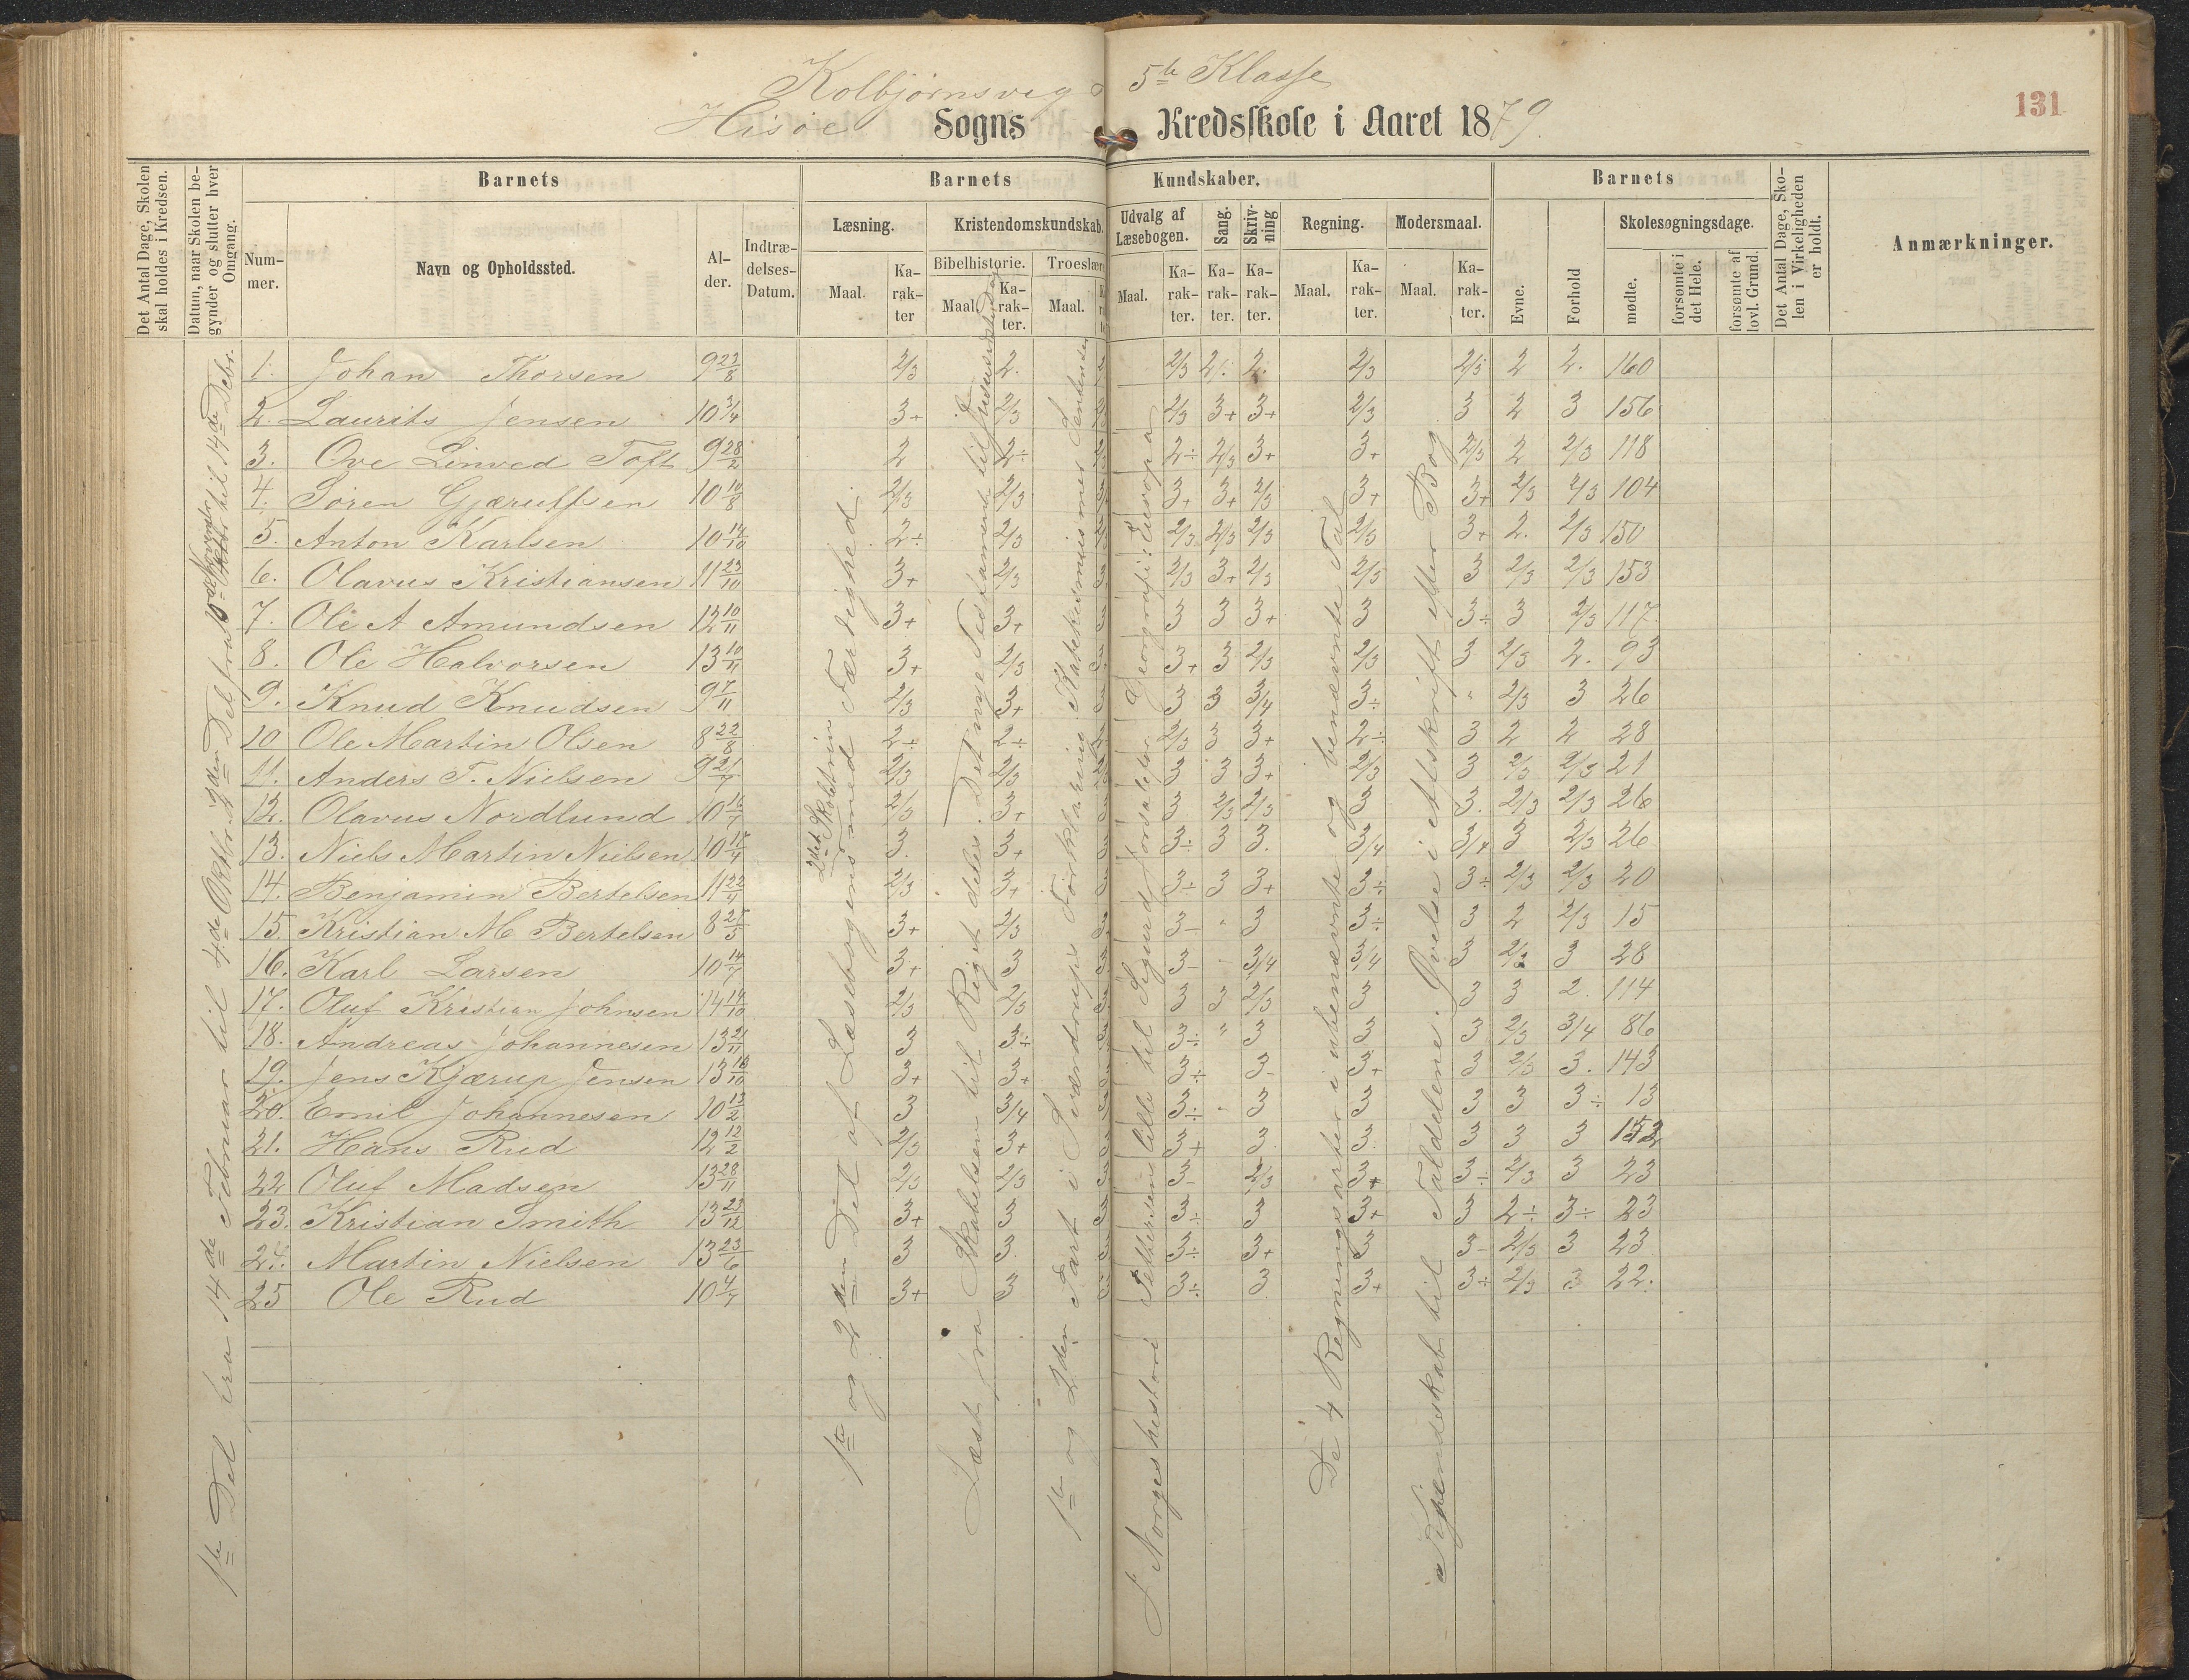 Kolbjørnsvig 5te Klasse
131
Hisøe Sogns Kredsskole i Aaret 1879.
Det Antal Dage, Skolen skal holdes i Kredsen.
Datum, naar Skolen begynder og slutter hver Omgang.
Barnets
Num-mer.
Navn og Opholdssted.
Al-der.
Indtræ-delses-Datum.
Barnets Kundskaber.
Læsning.
Maal.
Ka-rak-ter
Kristendomskundskab.
Bibelhistorie.
Maal.
Ka-rak-ter.
Troeslære
Maal.
Udvalg af Læsebogen.
Maal.
Ka-rak-ter.
Sang.
Ka-rak-ter.
Skriv-ning
Ka-rak-ter.
Regning.
Maal.
Ka-rak-ter.
Modersmaal.
Maal.
Ka-rak-ter.
Barnets
Evne.
Forhold
Skolesøgningsdage.
mødte.
forsømte i det Hele.
forsømte af lovl. Grund.
Det Antal Dage, Sko-len i Virkeligheden er holdt.
Anmærkninger.
1. Johan Thorsen 9 22/8 2/3 2. 2/3 2÷ 2. 2/3 2/3 2 2. 160
2. Laurits Jensen 10 3/4 3+ 2/3 2/3 3+ 3+ 2/3 3 2 3 156
3. Ove Linved Toft 9 28/2 2 2÷ 2÷ 2/3 3+ 3+ 2/3 2 2/3 118
4. Søren Gjærulfsen 10 10/8 2/3 2/3 3+ 3+ 2/3 3+ 3+ 2/3 2/3 104
5. Anton Karlsen 10 14/10 2÷ 2/3 2/3 2/3 2/3 2/3 3+ 2. 2/3 150
6. Olavus Kristiansen 11 23/10 3+ 2/3 2/3 3+ 2/3 2/3 3 2/3 2/3 153
7. Ole A Amundsen 12 10/11 3+ 3+ 3 3 3+ 3 3÷ 3 2/3 117.
8. Ole Halvorsen 13 10/11 3+ 2/3 3+ 3 2/3 2/3 3 2/3 2. 93
9. Knud Knudsen 9 7/11 2/3 3+ 3 3 3/4 3÷ " 2/3 3 26
10 Ole Martin Olsen 8 22/8 2÷ 2÷ 2/3 3 3+ 2÷ 3 2 2 28
11. Anders T. Nielsen 9 21/7 2/3 2/3 3 3 3+ 2/3 3 2/3 2/3 21
12. Olavus Nordlund 10 16/7 2/3 3+ 3 2/3 2/3 3 3. 2/3 2/3 26
13. Niels Martin Nielsen 10 17/4 3. 3+ 3÷ 3 3. 3/4 3/4 3 2/3 26
14. Benjamin Bertelsen 11 22/4 2/3 3+ 3÷ 3 3+ 3÷ 3÷ 2/3 2/3 20
15. Kristian M Bertelsen 8 25/5 3+ 2/3 3- " 3 3÷ 3 2 2/3 15
16. Karl Larsen 10 14/7 3+ 3 3- 3/4 3/4 3 2/3 3 28
17. Oluf Kristian Johnsen 14 14/10 2/3 2/3 3 3 2/3 3 3 3 2. 114
18. Andreas Johannesen 13 21/11 3 3÷ 3÷ " 3 3 3 2/3 3/4 86
19. Jens Kjærup Jensen 13 18/10 3+ 3+ 3÷ 3- 3+ 3 2/3 3. 143
20. Emil Johannesen 10 13/2 3 3/4 3÷ " 3 3 3 3 3÷ 13
21. Hans Rud 12 12/2 2/3 3+ 3+ 3 3. 3 3 3 152
22 Oluf Madsen 13 28/11 2/3 2/3 3- 2/3 3+ 3÷ 2/3 3 23
23. Kristian Smith 13 23/12 3+ 3 3÷ 3 3+ 3 2÷ 3÷ 23
24. Martin Nielsen 13 23/6 3 3. 3÷ 3+ 3 3- 2/3 3 23
25 Ole Rud 10 4/7 3+ 3 3÷ 3 3+ 3÷ 2/3 3 22.
1te Del fra 14de Februar til 4de Oktbr. 2den Del fra til 14de Debr.
1te og 2den Del af Læsebogens 2det Skoletrin med Færdighed.
Læst fra Skabelsen til Riget deles. Det nye Testamente til
1te og 2den Part i Sværdrups Forklaring. Katekismus med
I Norges historie Pettersens lille til Sigurd Jorsalafar. Geografi: Europa
De 4 Regningsarter i ubenævnte og benævnte Tal
Kjendskab til Taledelene. Øvelse i Afskrift efter Bog